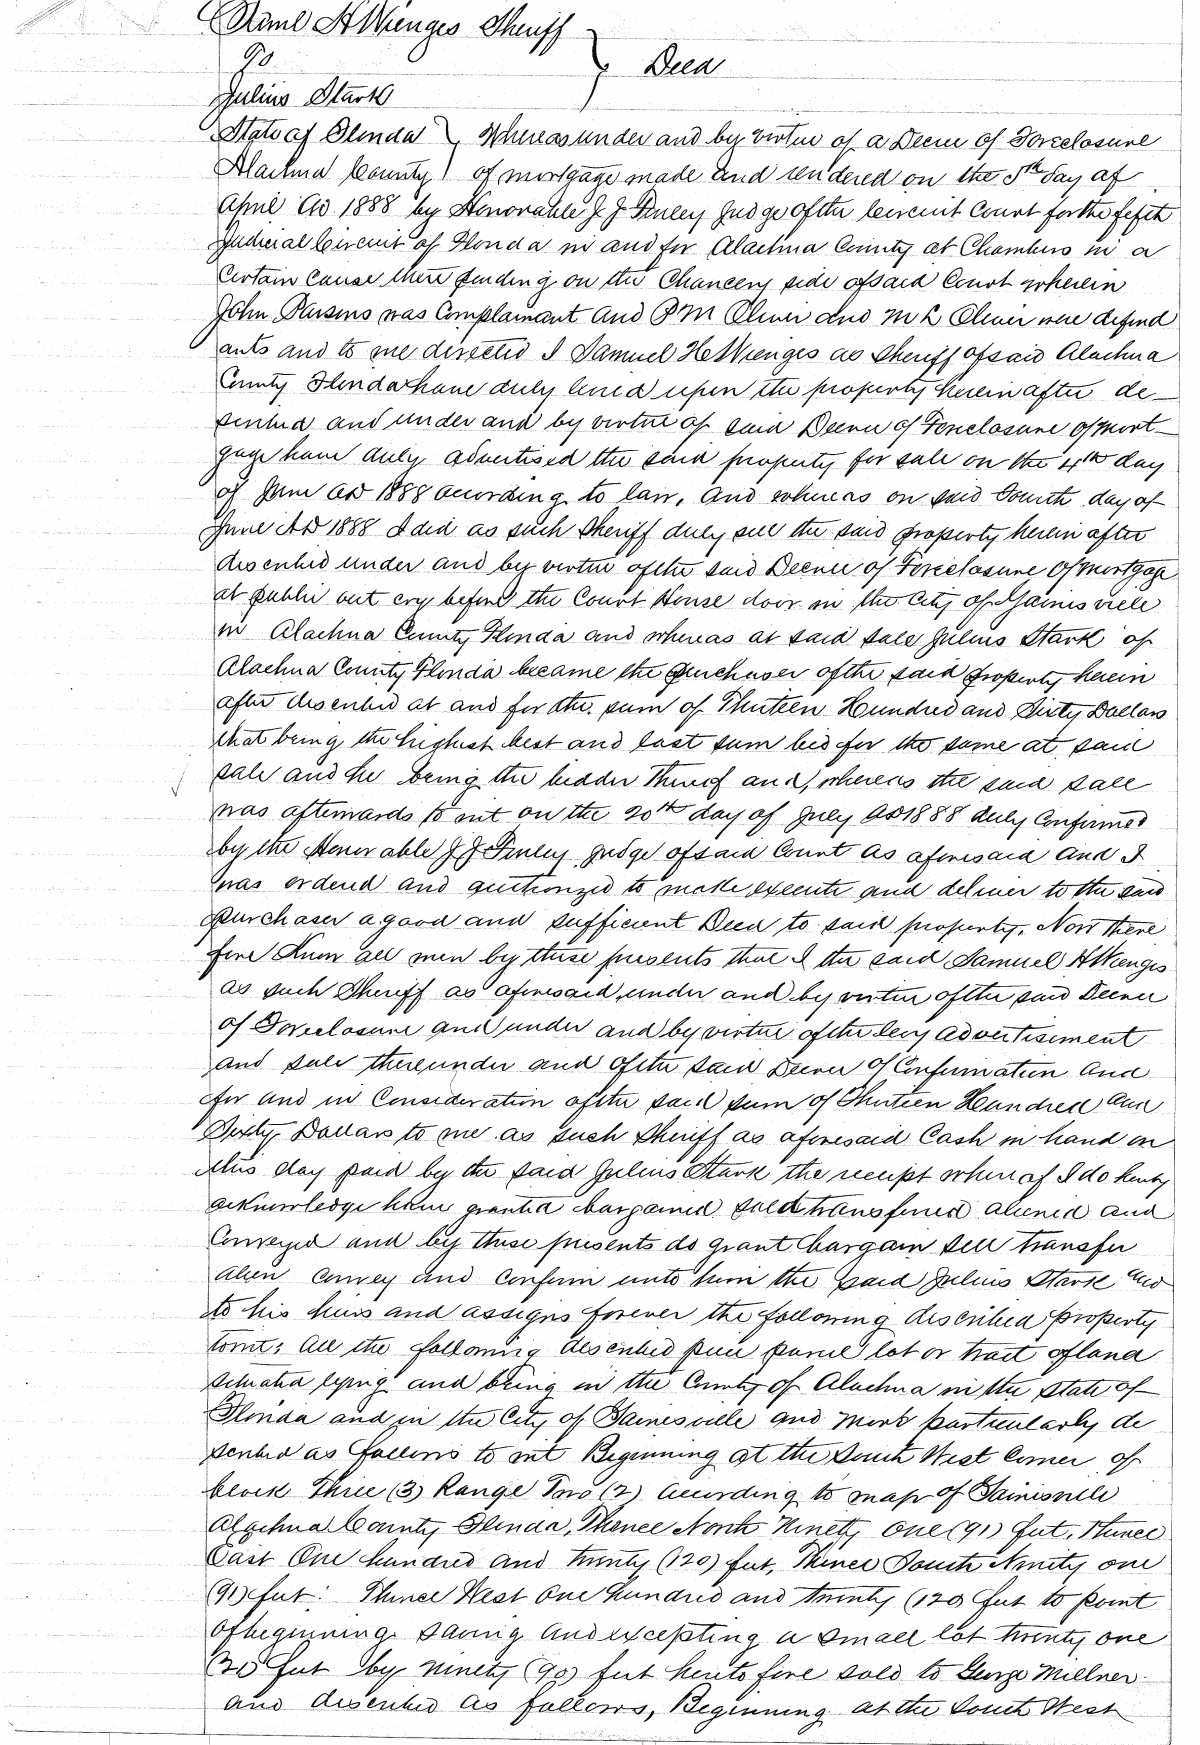 Saml H Wienges Sheriff
To } Deed
Julius Stark
State of Florida } Whereas under and by virtue of a Decree of Foreclosure
Alachua County } of mortgage made and rendered on the 5th day of
April AD 1888 by Honorable J J Finley Judge of the Circuit Court for the fifth
Judicial Circuit of Florida in and for Alachua County at Chambers in a
Certain Cause there pending on the Chancery side of said Court wherein
John Parsons was Complainant and P M Oliver and M L Oliver were defend
ants and to me directed I Samuel H Wienges as Sheriff of said Alachua
County Florida have duly levied upon the property herein after de-
scribed and under and by virtue of said Decree of Foreclosure of Mort-
gage have duly advertised the said property for sale on the 4th day
of June AD 1888 according to law. And whereas on said Fourth day of
June AD 1888 I did as such Sheriff duly sell the said property herein after
described under and by virtue of the said Decree of Foreclosure of Mortgage
at public out cry before the Court House door in the City of Gainesville
in Alachua County Florida and whereas at said sale Julius Stark of
Alachua County Florida became the purchaser of the said property herein
after described at and for the sum of Thirteen Hundred and Sixty Dollars
that being the highest best and last sum bid for the same at said
sale and he being the bidder thereof and, whereas the said sale
was afterwards to wit on the 20th day of July AD 1888 duly Confirmed
by the Honorable J J Finley Judge of said Court as aforesaid and I
was ordered and authorized to make execute and deliver to the said
purchaser a good and sufficient Deed to said property. Now there
fore Know all men by these presents that I the said Samuel H Wienges
as such Sheriff as aforesaid under and by virtue of the said Decree
of Foreclosure and under and by virtue of the levy advertisement
and sale thereunder and of the said Decree of Confirmation and
for and in Consideration of the said sum of Thirteen Hundred and
Sixty Dollars to me as such Sheriff as aforesaid Cash in hand on
this day paid by the said Julius Stark the receipt whereof I do hereby
acknowledge have granted bargained sold transferred aliened and
Conveyed and by these presents do grant bargain sell transfer
alien convey and confirm unto him the said Julius Stark and
to his heirs and assigns forever the following described property
towit: All the following described piece parcel lot or tract of land
situated lying and being in the County of Alachua in the State of
Florida and in the City of Gainesville and more particularly de
scribed as follows to wit Beginning at the South West Corner of
block Three (3) Range Two (2) according to map of Gainesville
Alachua County Florida, Thence North Ninety one (91) feet, Thence
East One hundred and twenty (120) feet, Thence South Ninety one
(91) feet: Thence West One hundred and twenty (120 feet to point
of beginning saving and excepting a small lot twenty one
(21) feet by ninety (90) feet heretofore sold to George Millner
and described as follows, Beginning at the South West